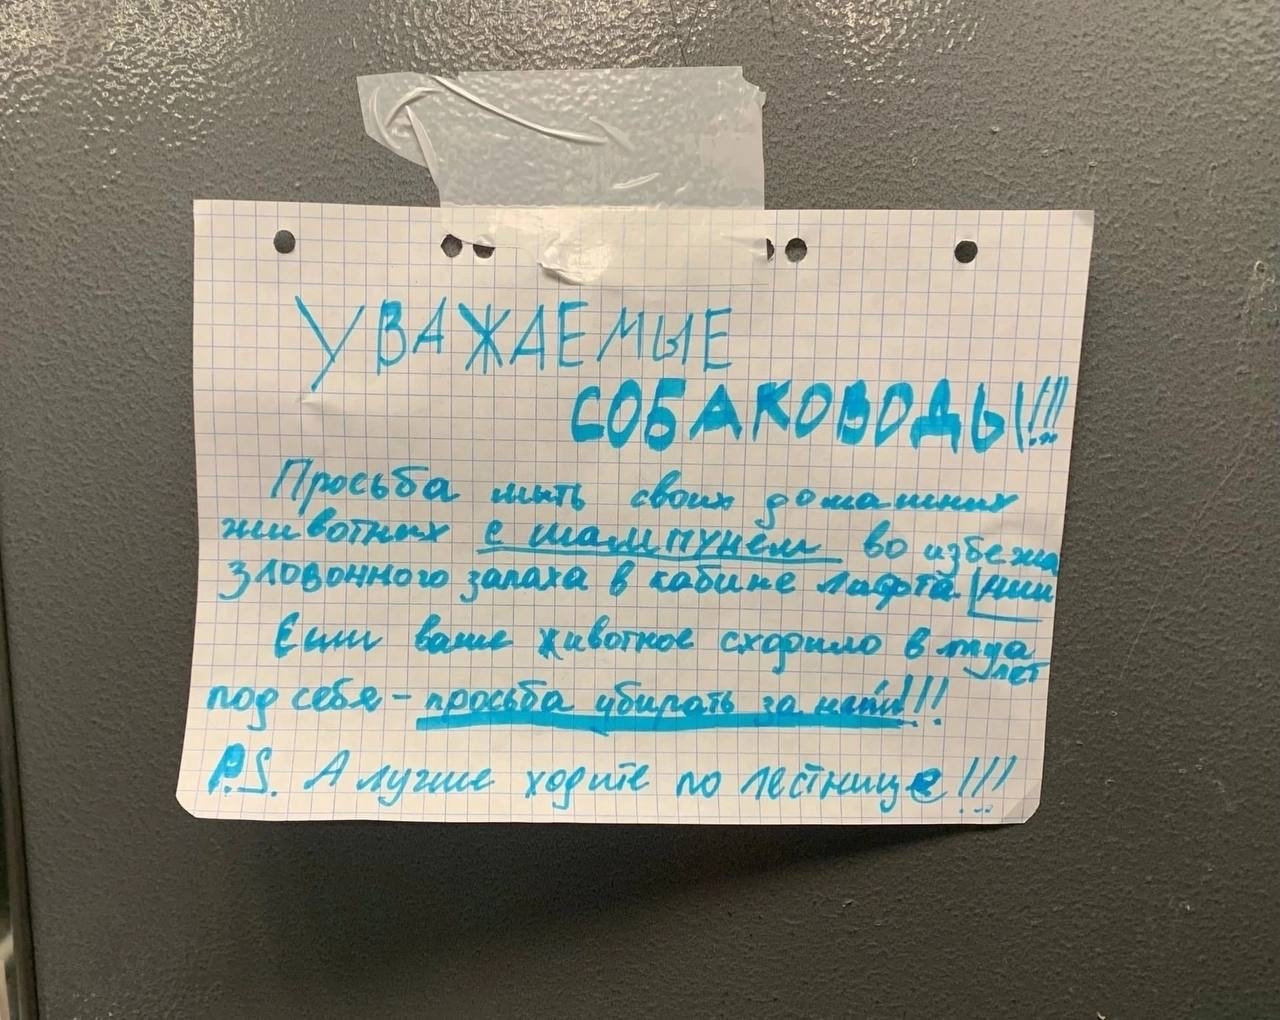 УВАЖАЕМЫЕ
СОБАКОВОДЫ!!!
Просьба мыть своих домашних
животных с шампунем во избежа
зловонного запаха в кабине лифта |нии
Если ваше животное сходило в туа
лет
под себя - просьба убирать за ним!!!
P.S. А лучше ходите по лестнице!!!